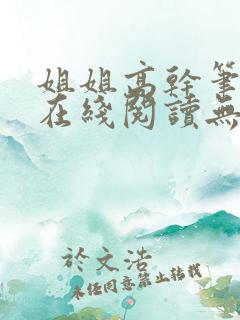 姐姐高幹筆
在綫閱讀無
於文浩
未任同意禁止转载